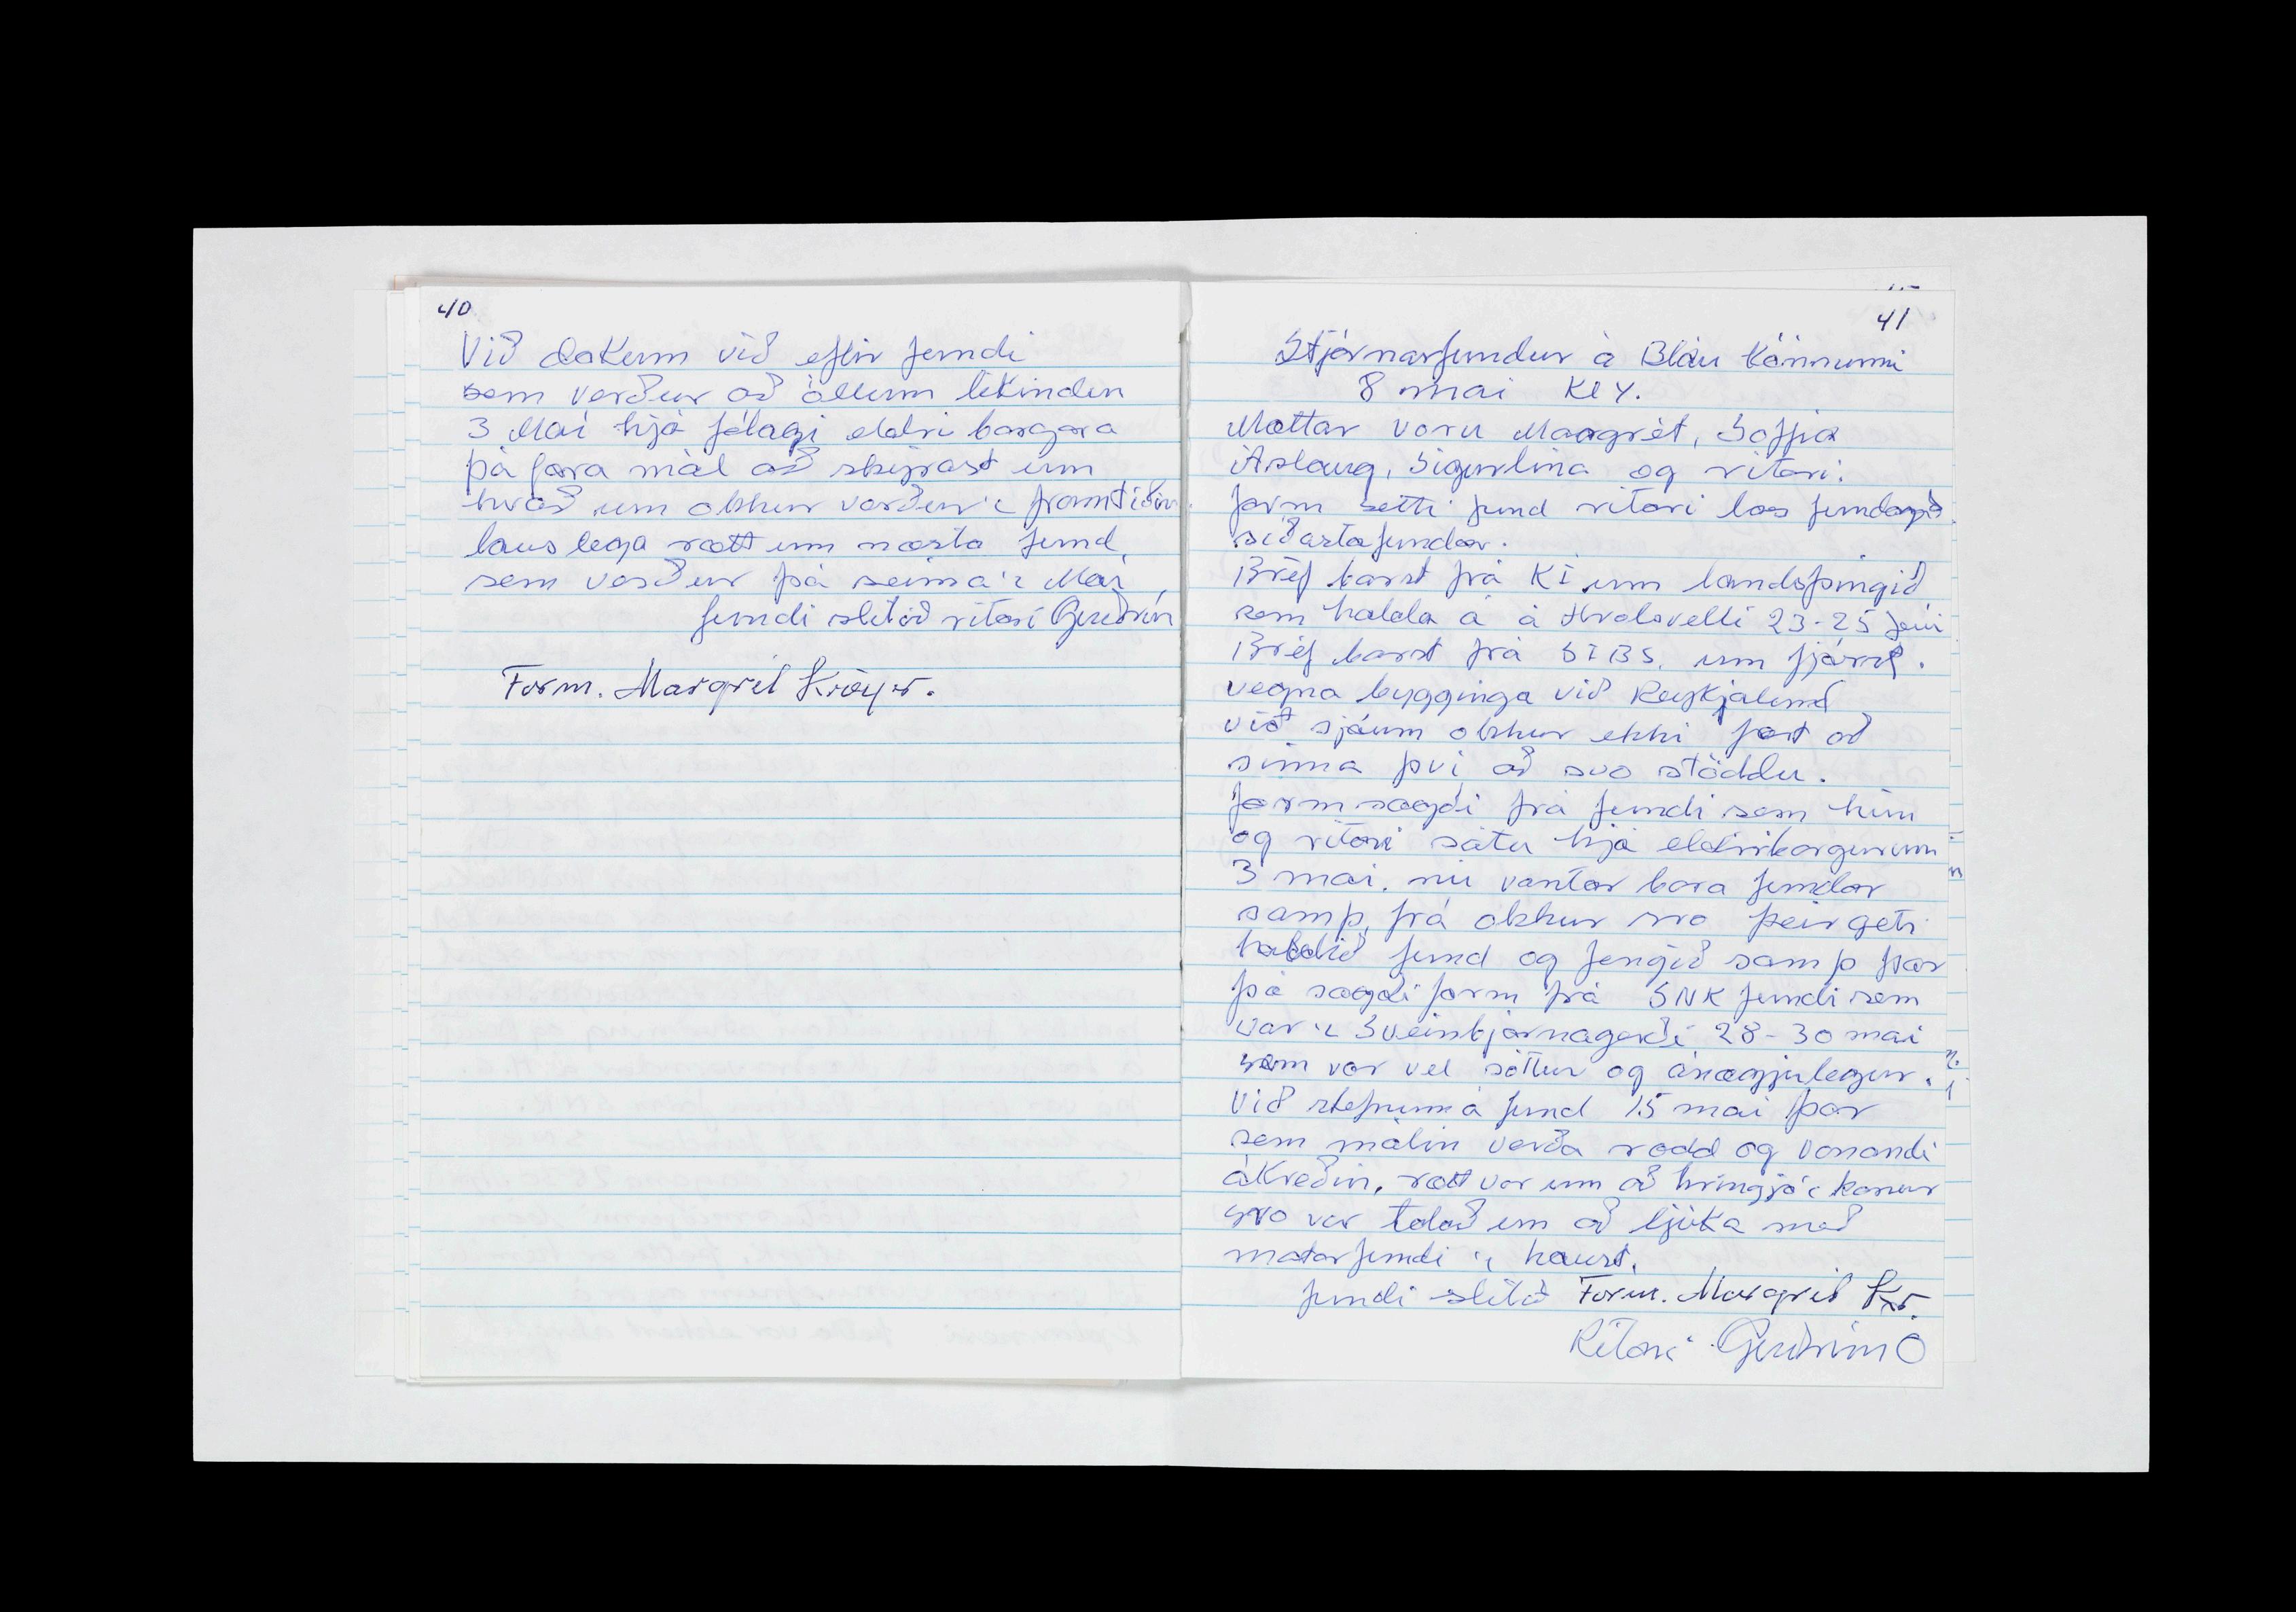 40
Við dokum við eftir fundi
sem verður að öllum likindum
3 Mai hjá félagi eldri borgara
þá fara mál að skýrast um
hvað um okkur verður í framtiðinni.
laus lega rætt um næsta fund,
sem verður þá seima í Mai
fundi slitið ritari Guðrún
Form. Margrét Kröyer.
41
Stjórnarfundur á Bláu Könnunni
8 mai Kl 4.
Mættar voru Maargrét, Soffia
Áslaug, Sigurlína og ritari.
form setti fund ritari las fundagð
siðasta fundar.
Bréf barst frá KÍ um landsþingið
sem halda á á Hvolsvelli 23-25 Júni
Bréf barst frá SIBS. um fjárst.
vegna bygginga við Reykjalund
við sjáum okkur ekki fært að
sinna þvi að svo stöddu.
form sagði frá fundi sem hún
og ritari sátu hjá eldriborgurum
3 mai. nú vantar bara fundar
samþ. frá okkur svo þeir geti
haldið fund og fengið samþ þar
þá sagði form frá SNK fundi sem
var í Sveinbjarnagerði 28-30 mai
sem var vel sóttur og ánægjulegur.
Við stefnum á fund 15 mai þar
sem málin verða rædd og vonandi
ákveðin. rætt var um að hringja í konur
svo var talað um að ljúka með
matarfundi í haust.
fundi slitið Form. Margrét Kr.
Ritari Guðrún Ó